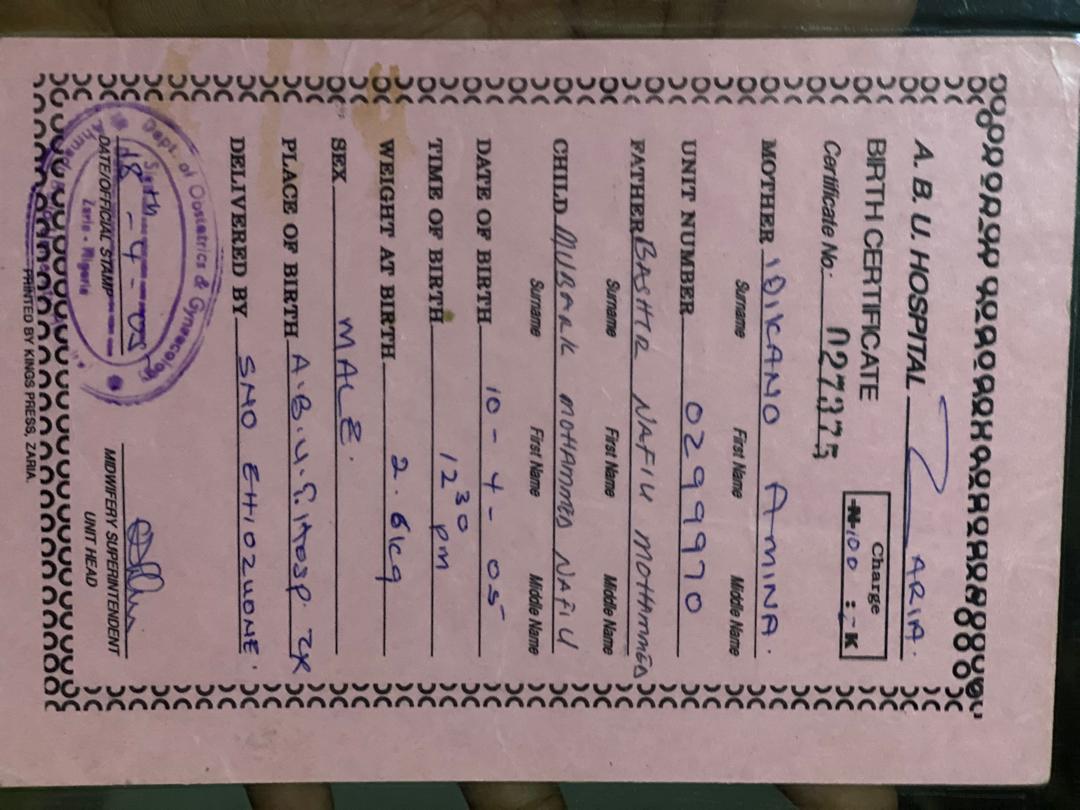 A. B. U. HOSPITAL ZARIA.
BIRTH CERTIFICATE
Certificate No: 027375
Charge
₦100 :-K
MOTHER IDIKANO AMINA.
Surname First Name Middle Name
UNIT NUMBER 0299970
FATHER BASHIR NAFIU MOHAMMED
Surname First Name Middle Name
CHILD MUBARK MOHAMMED NAFIU
Surname First Name Middle Name
DATE OF BIRTH 10-4-05
TIME OF BIRTH 12 30 pm
WEIGHT AT BIRTH 2.6kg
SEX MALE.
PLACE OF BIRTH A.B.U.T.Hosp. ZK
DELIVERED BY SNO EHIOZUONE.
Dept. of Obstetrics & Gynaecology
18-4-05
DATE/OFFICIAL STAMP
Zaria - Nigeria
MIDWIFERY SUPERINTENDENT
UNIT HEAD
PRINTED BY KINGS PRESS, ZARIA.